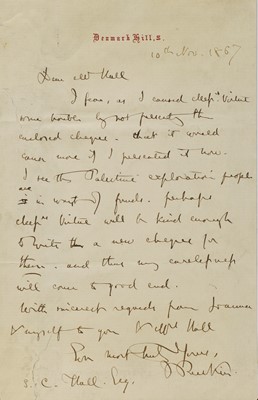 Denmark Hill, S.
10th Nov. 1867
Dear Mr Hall
I fear, as I caused Messrs Virtue
some trouble by not presenting the
enclosed cheque - that it would
cause more if I presented it now.
I see the Palestine exploration people
are in want of funds. perhaps
Messrs Virtue will be kind enough
to write a new cheque for
them - and thus my carelessness
will come to good end.
With sincerest regards from Joanna
& myself to you & Mrs Hall
Ever most truly Yours,
J Ruskin
S. C. Hall. Esq.